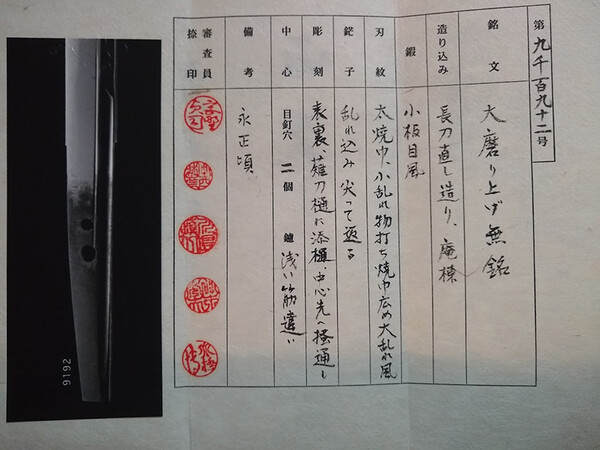 第九千百九十二号
銘文 大磨り上げ無銘
造り込み 長刀直し造り、庵棟
鍛 小板目風
刃紋 太焼巾、小乱れ物打ち焼巾広め大乱れ風
鋩子 乱れ込み尖って返る
彫刻 表裏、薙刀樋に添樋、中心先へ掻通し
中心 目釘穴 二個 鑢 浅い筋違い
備考 永正頃
審査員捺印
9192